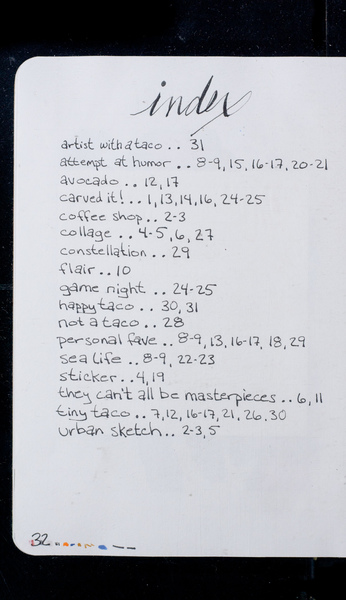 index
artist with a taco .. 31
attempt at humor .. 8-9, 15, 16-17, 20-21
avocado .. 12, 17
carved it! .. 1, 13, 14, 16, 24-25
coffee shop .. 2-3
collage .. 4-5, 6, 27
constellation .. 29
flair .. 10
game night .. 24-25
happy taco .. 30, 31
not a taco .. 28
personal fave .. 8-9, 13, 16-17, 18, 29
sea life .. 8-9, 22-23
sticker .. 4, 19
they can't all be masterpieces .. 6, 11
tiny taco .. 7, 12, 16-17, 21, 26, 30
urban sketch .. 2-3, 5
32